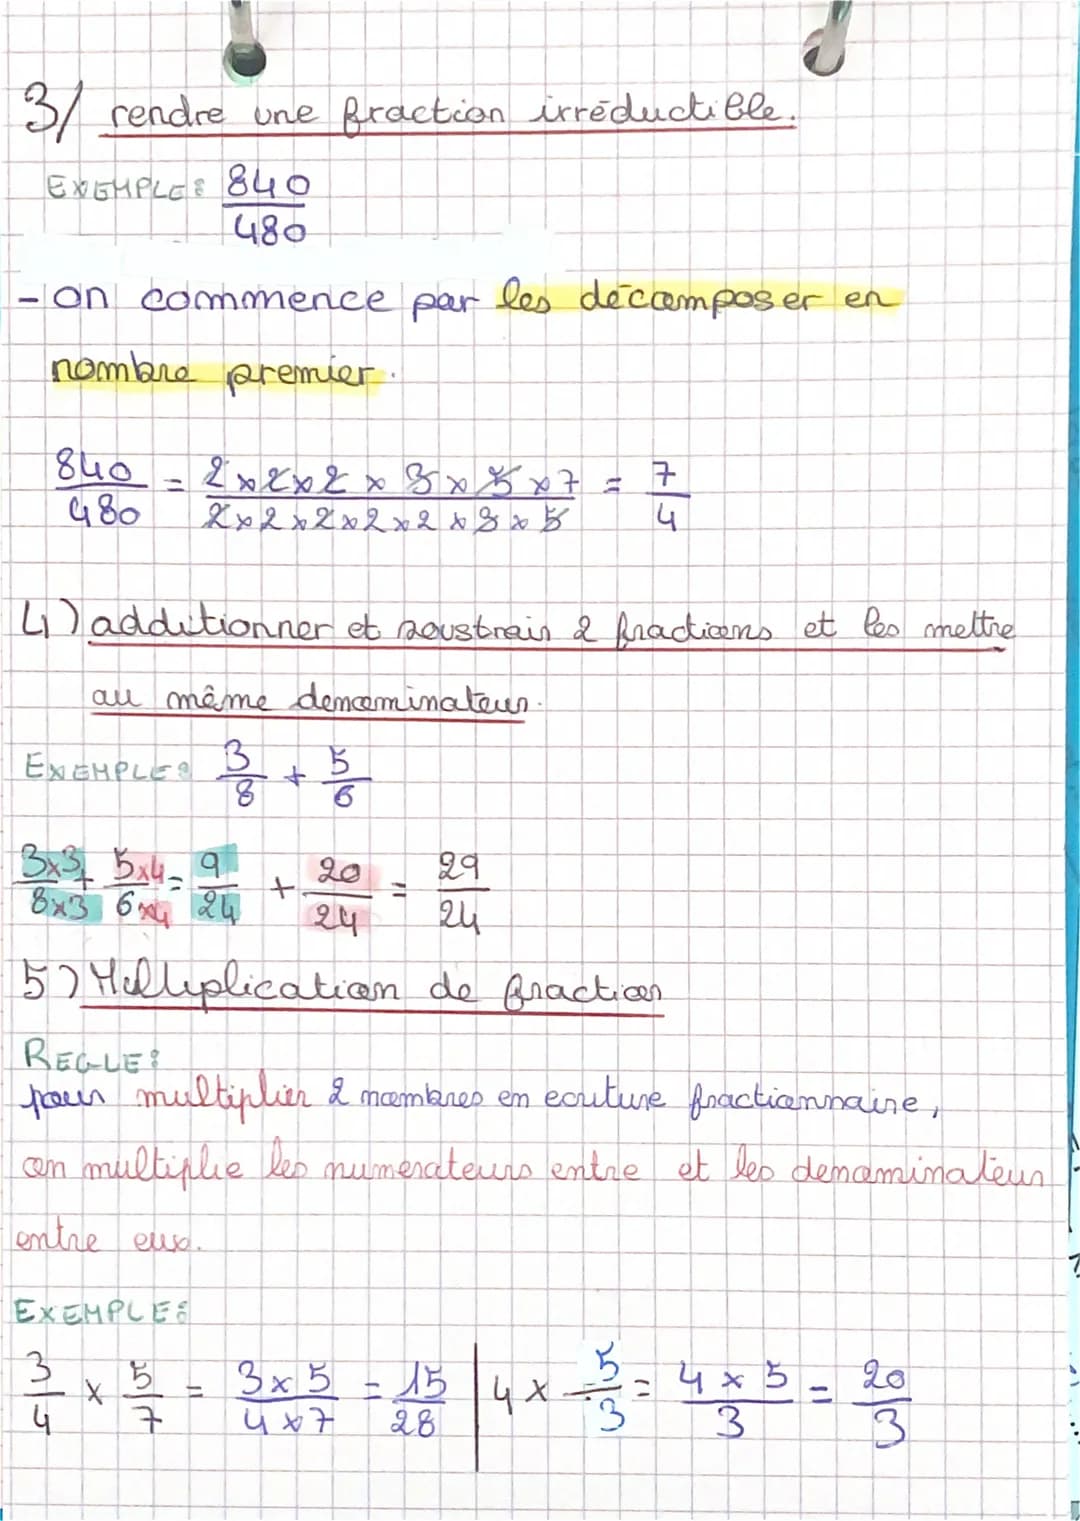 3/ rendre une fraction irréductible.
EXEMPLE: 840/480
- on commence par les décomposer en
nombre premier.
840/480 = 2×2×2×3×5×7/2×2×2×2×2×3×5 = 7/4
4) additionner et soustrair 2 fractions et les mettre
au même denominateur.
EXEMPLE: 3/8 + 5/6
3×3/8×3 + 5×4/6×4 = 9/24 + 20/24 = 29/24
5) Multiplication de fraction
REGLE:
pour multiplier 2 nombres en ecriture fractionnaire,
on multiplie les numerateurs entre et les denominateur
entre eux.
EXEMPLE:
3/4 × 5/7 = 3×5/4×7 = 15/28 | 4 × 5/3 = 4×5/3 = 20/3